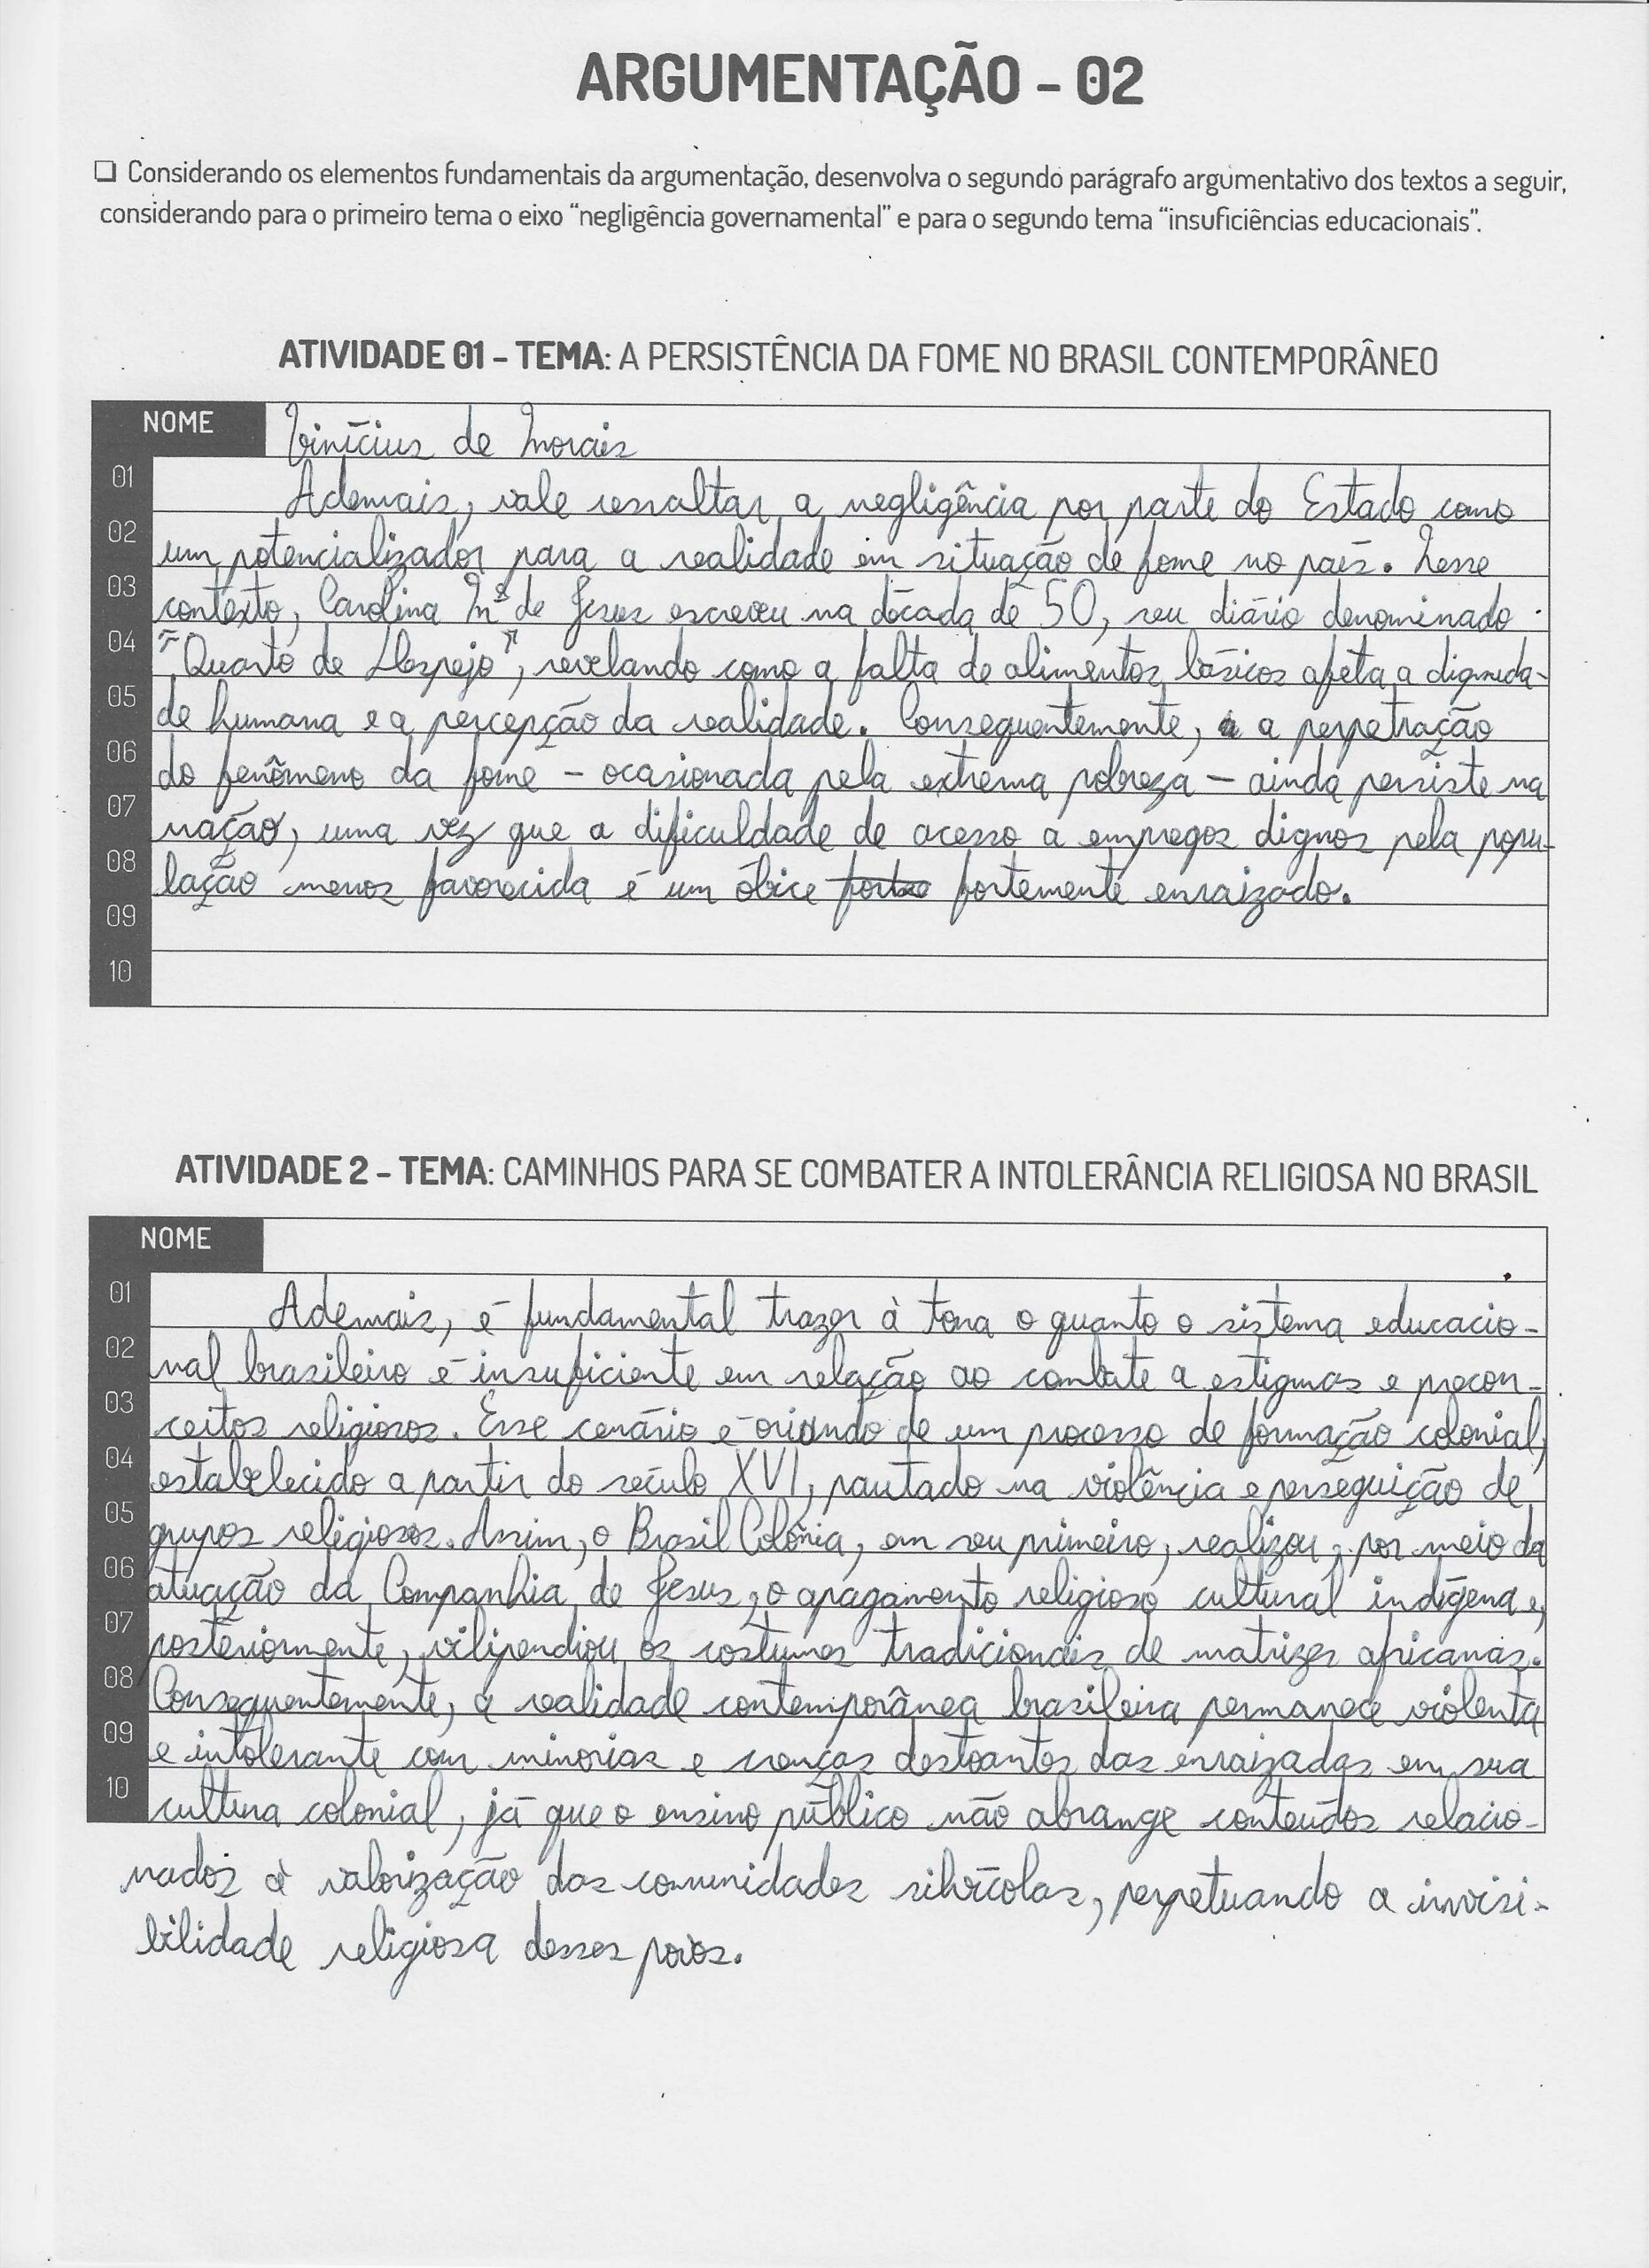 ARGUMENTAÇÃO - 02
❏ Considerando os elementos fundamentais da argumentação, desenvolva o segundo parágrafo argumentativo dos textos a seguir,
considerando para o primeiro tema o eixo “negligência governamental” e para o segundo tema “insuficiências educacionais”.
ATIVIDADE 01 – TEMA: A PERSISTÊNCIA DA FOME NO BRASIL CONTEMPORÂNEO
NOME Vinícius de Morais
01 Ademais, vale ressaltar a negligência por parte do Estado como
02 um potencializador para a realidade em situação de fome no país. Nesse
03 contexto, Carolina Mª de Jesus escreveu na década de 50, seu diário denominado
04 "Quarto de Despejo", revelando como a falta de alimentos básicos afeta a dignida-
05 de humana e a percepção da realidade. Consequentemente, a a perpetração
06 do fenômeno da fome – ocasionada pela extrema pobreza – ainda persiste na
07 nação, uma vez que a dificuldade de acesso a empregos dignos pela popu-
08 lação menos favorecida é um óbice fortemente enraizado.
09
10
ATIVIDADE 2 – TEMA: CAMINHOS PARA SE COMBATER A INTOLERÂNCIA RELIGIOSA NO BRASIL
NOME
01 Ademais, é fundamental trazer à tona o quanto o sistema educacio-
02 nal brasileiro é insuficiente em relação ao combate a estigmas e precon-
03 ceitos religiosos. Esse cenário é oriundo de um processo de formação colonial,
04 estabelecido a partir do século XVI, pautado na violência e perseguição de
05 grupos religiosos. Assim, o Brasil Colônia, em seu primeiro, realizou, por meio da
06 atuação da Companhia de Jesus, o apagamento religioso cultural indígena e,
07 posteriormente, vilipendiou os costumes tradicionais de matrizes africanas.
08 Consequentemente, a realidade contemporânea brasileira permanece violenta
09 e intolerante com minorias e crenças destoantes das enraizadas em sua
10 cultura colonial, já que o ensino público não abrange conteúdos relacio-
nados à valorização das comunidades silvícolas, perpetuando a invisi-
bilidade religiosa desses povos.